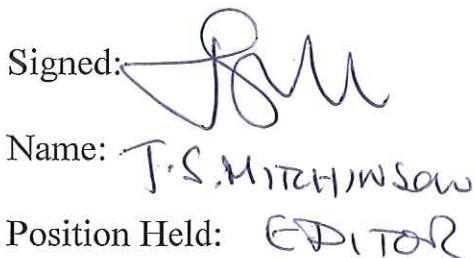 Signed:
Name: J.S. MITCHINSON
Position Held: EDITOR